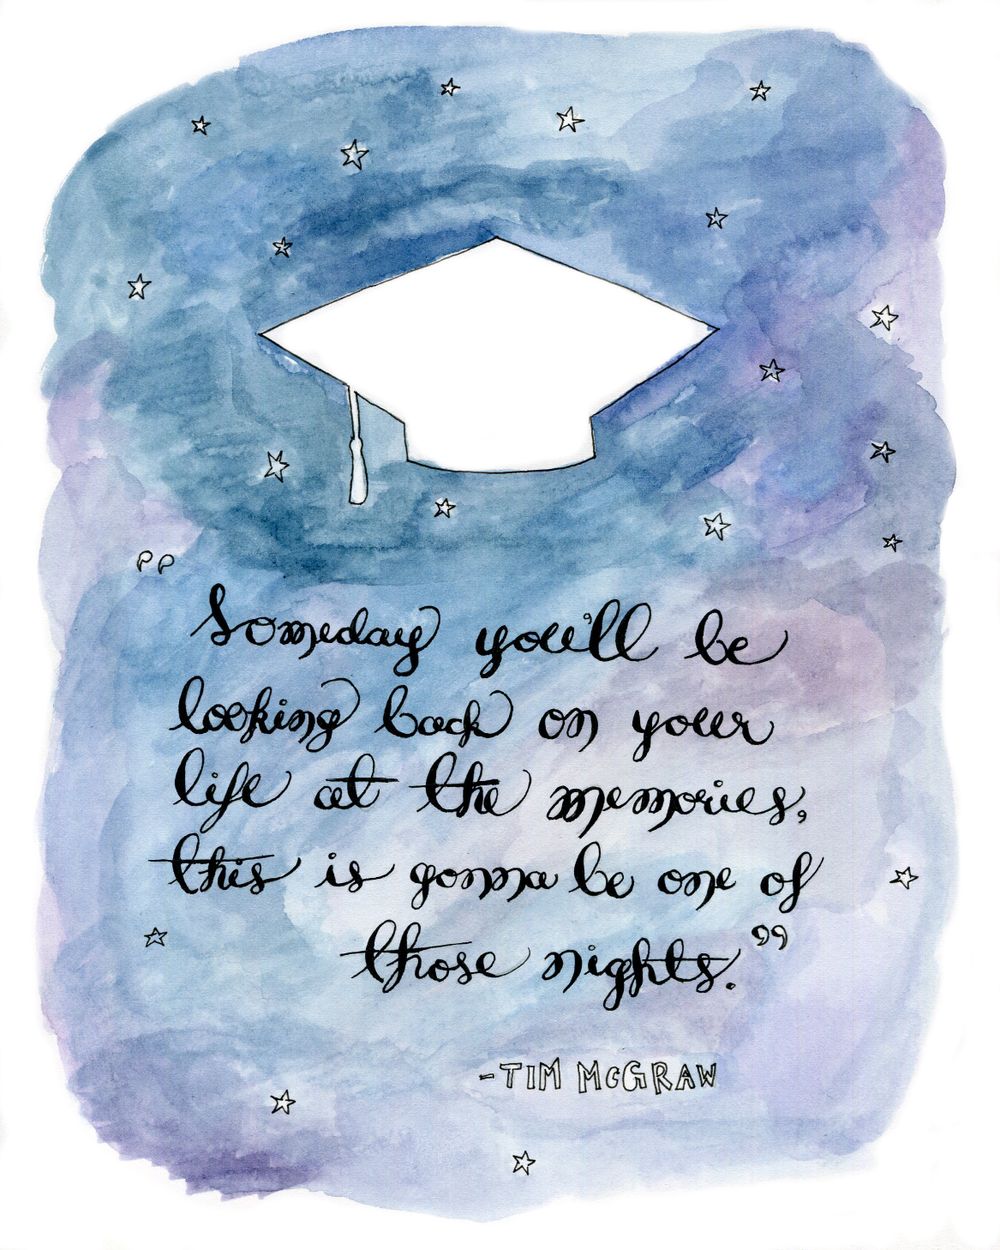 "Someday you'll be
looking back on your
life at the memories,
this is gonna be one of
those nights."
-TIM McGRAW